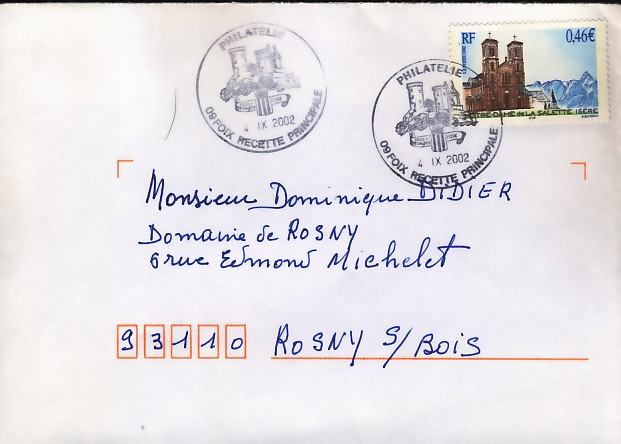 PHILATELIE
4 IX 2002
09 FOIX RECETTE PRINCIPALE
PHILATELIE
4 IX 2002
09 FOIX RECETTE PRINCIPALE
RF 0,46€
NOTRE-DAME DE LA SALETTE ISÈRE
Monsieur Dominique DIDIER
Domaine de ROSNY
6 rue Edmond Michelet
93110 ROSNY S/BOIS